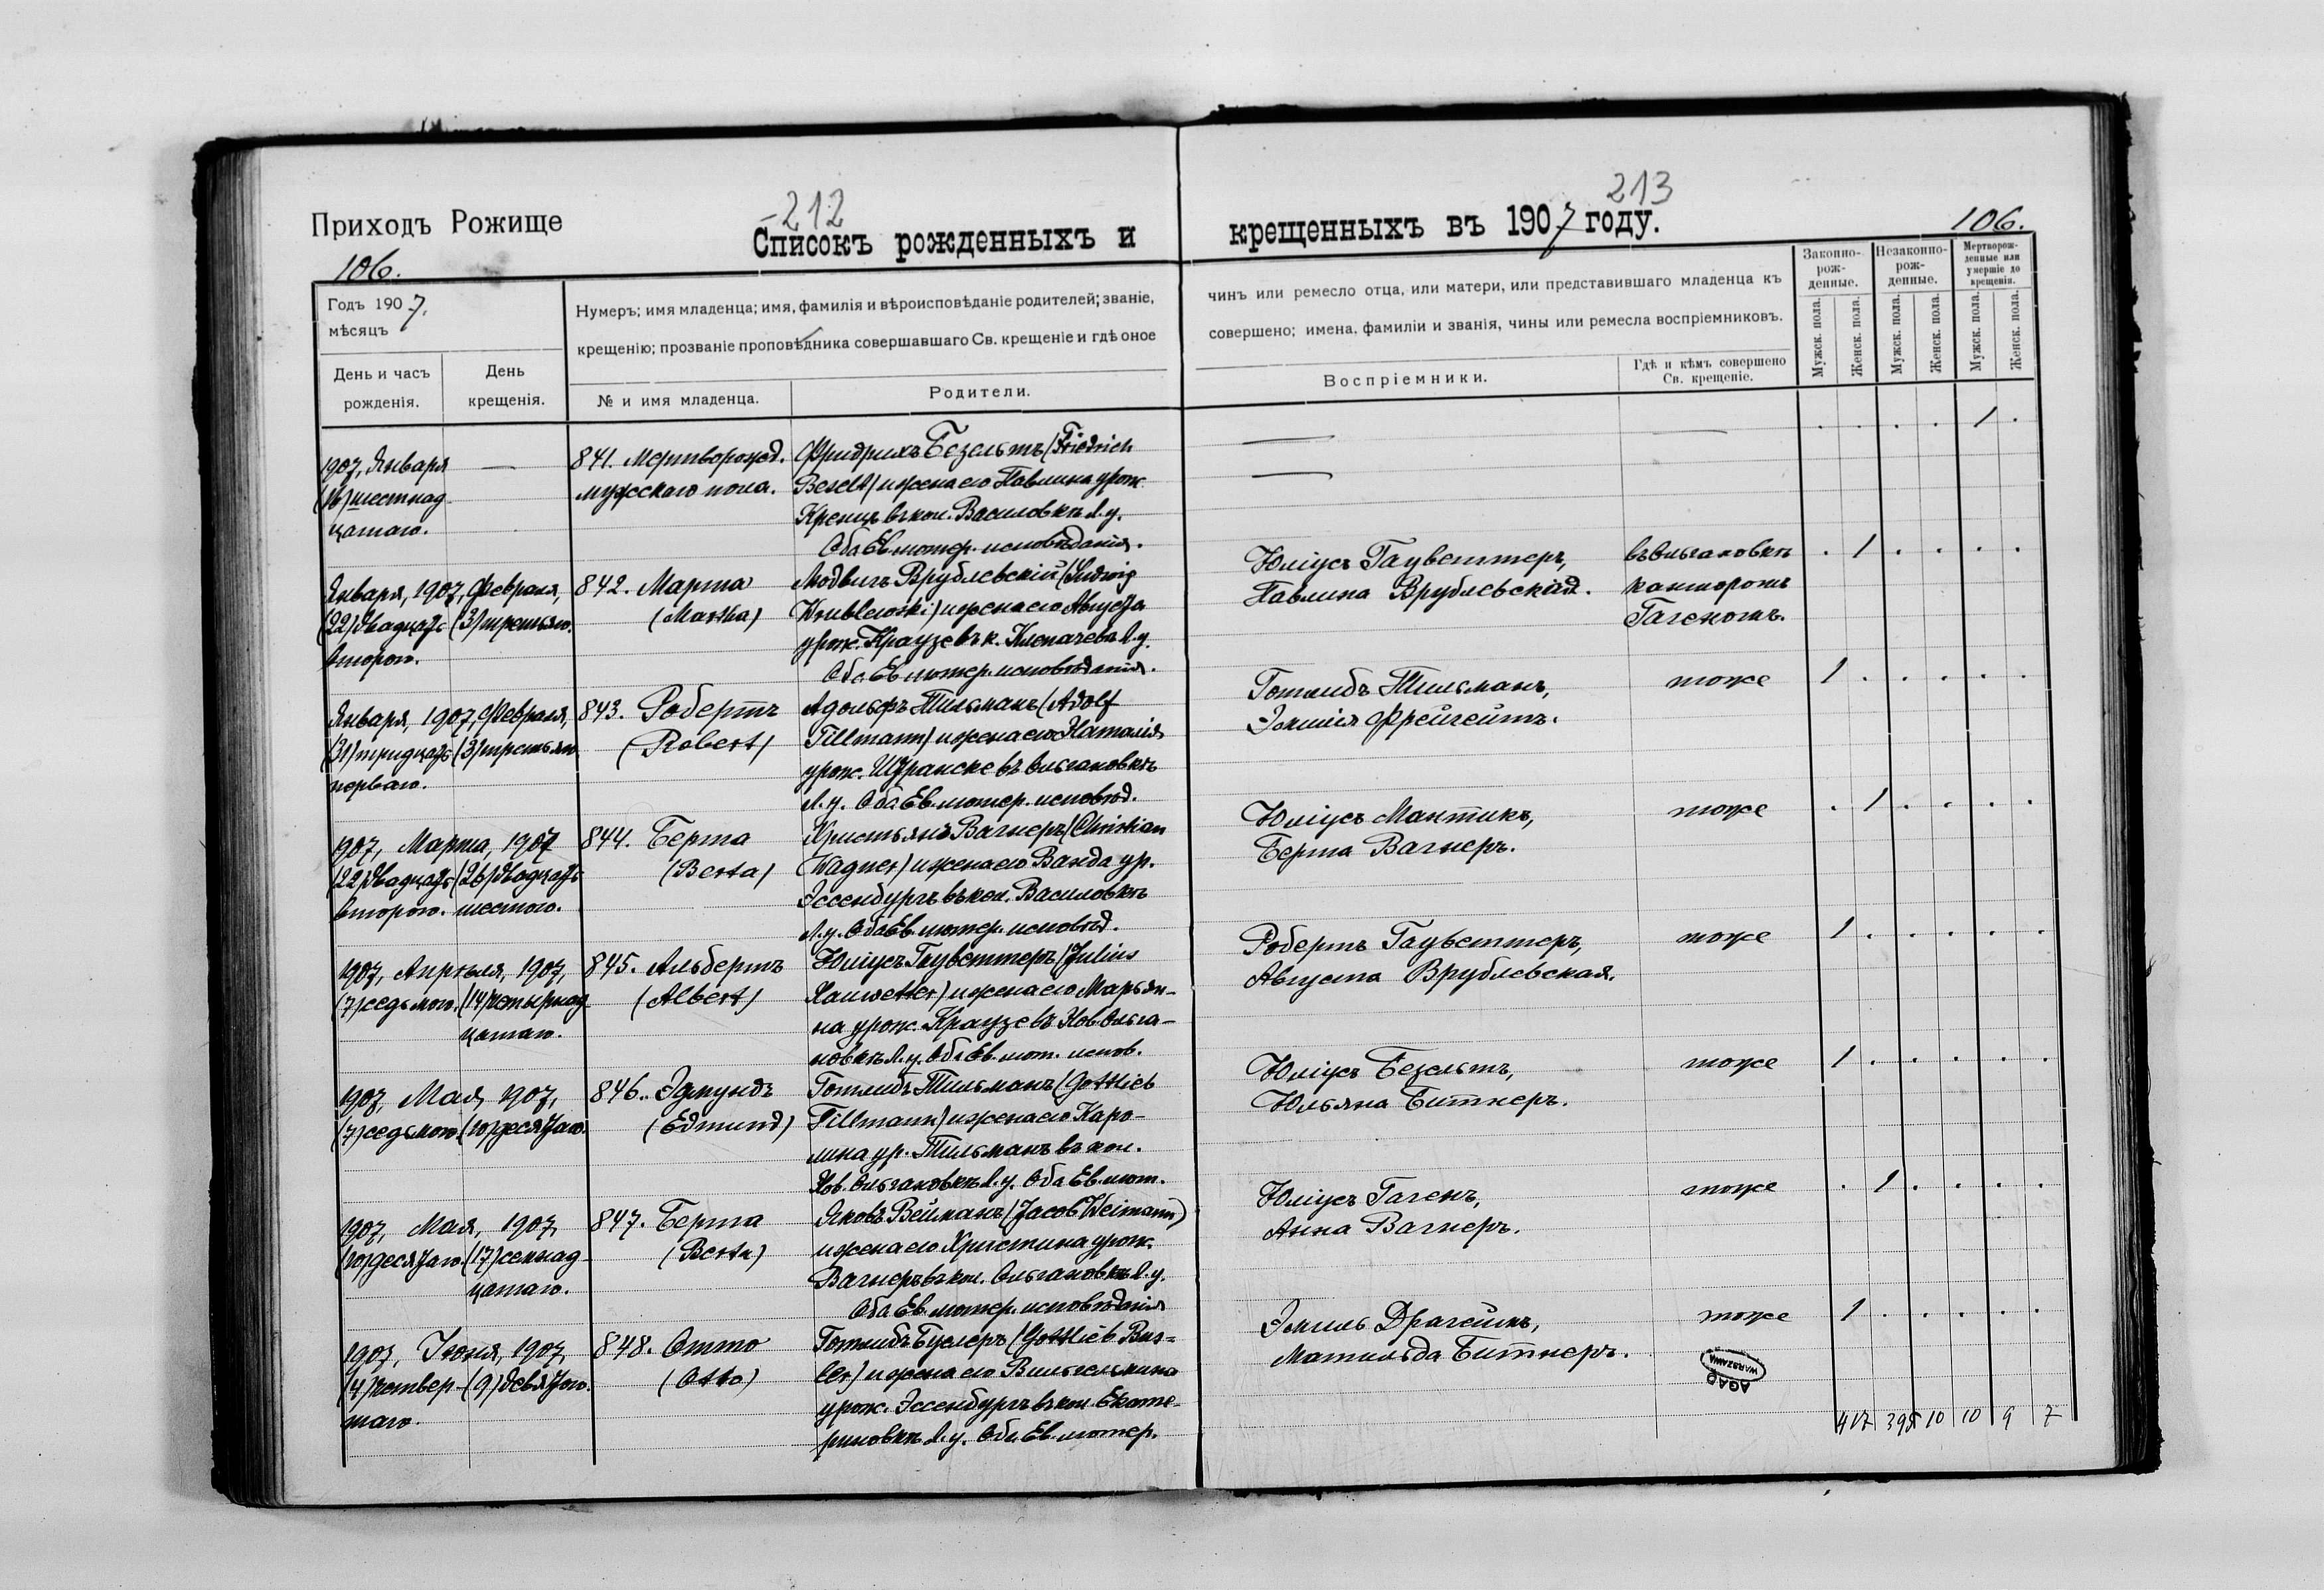 -212
213
Приходъ Рожище
Списокъ рожденныхъ и
крещенныхъ въ 1907 году.
106.
106.
Годъ 1907.
мѣсяцъ
День и часъ
рожденія.
День
крещенія.
Нумеръ; имя младенца; имя, фамилія и вѣроисповѣданіе родителей; званіе,
крещенію; прозваніе проповѣдника совершавшаго Св. крещеніе и гдѣ оное
№ и имя младенца.
Родители.
чинъ или ремесло отца, или матери, или представившаго младенца къ
совершено; имена, фамиліи и званія, чины или ремесла воспріемниковъ.
Воспріемники.
Гдѣ и кѣмъ совершено
Св. крещеніе.
Законно-
рож-
денные.
Незаконно-
рож-
денные.
Мертворож-
денные или
умершіе до
крещенія.
Мужск. пола.
Женск. пола.
Мужск. пола.
Женск. пола.
Мужск. пола.
Женск. пола.
1907, Января
(16) шестнад-
цатаго.
—
841. Мертворожд.
мужскаго пола.
Фридрихъ Безельтъ (Friedrich
Beselt) и жена его Павлина урож.
Кренцъ въ кол. Василовкѣ Л. у.
Оба Ев. лютер. исповѣданія.
—
—
—
. . . . 1 .
Января, 1907, Февраля,
(22) двадцать (3) третьяго.
второго.
842. Марта
(Martha)
Людвигъ Врублевскій (Ludwig
Wrublewski) и жена его Августа
урож. Краузе въ к. Клепачевѣ Л. у.
Оба Ев. лютер. исповѣданія.
Юліусъ Гауветтеръ,
Павлина Врублевская.
въ Ольгановкѣ
канторомъ
Гагеномъ.
. 1 . . . .
Января, 1907, Февраля,
(31) тридцать (3) третьяго
перваго.
843. Робертъ
(Robert)
Адольфъ Тильманъ (Adolf
Tillmann) и жена его Наталія
урож. Шранске въ Ольгановкѣ
Л. у. Оба Ев. лютер. исповѣд.
Готлибъ Тильманъ,
Эмилія Фрейгейтъ.
тоже
1 . . . . .
1907, Марта, 1907
(22) двадцать (26) двадцать
второго. шестого.
844. Берта
(Berta)
Христьянъ Вагнеръ (Christian
Wagner) и жена его Ванда ур.
Эссенбургъ въ кол. Василовкѣ
Л. у. Оба Ев. лютер. исповѣд.
Юліусъ Мантикъ,
Берта Вагнеръ.
тоже
. 1 . . . .
1907, Апрѣля, 1907,
(7) седьмого. (14) четырнад-
цатаго.
845. Альбертъ
(Albert)
Юліусъ Гауветтеръ (Julius
Hauwetter) и жена его Марьян-
на урож. Краузе въ Нов. Ольга-
новкѣ Л. у. Оба Ев. лют. испов.
Робертъ Гауветтеръ,
Августа Врублевская.
тоже
1 . . . . .
1907, Мая, 1907,
(7) седьмого (10) десятаго.
846. Эдмундъ
(Edmund)
Готлибъ Тильманъ (Gottlieb
Tillmann) и жена его Каро-
лина ур. Тильманъ въ кол.
Нов. Ольгановкѣ Л. у. Оба Ев. лют.
Юліусъ Безельтъ,
Юльяна Битнеръ.
тоже
1 . . . . .
1907, Мая, 1907,
(10) десятаго. (17) семнад-
цатаго.
847. Берта
(Berta)
Яковъ Вейманъ (Jacob Weimann)
и жена его Христина урож.
Вагнеръ въ кол. Ольгановкѣ Л. у.
Оба Ев. лютер. исповѣданія
Юліусъ Гагенъ,
Анна Вагнеръ.
тоже
. 1 . . . .
1907, Іюня, 1907,
(4) четвер- (9) девятого.
таго.
848. Отто
(Otto)
Готлибъ Буслеръ (Gottlieb Bus=
ler) и жена его Вильгельмина
урож. Эссенбургъ въ кол. Екате-
риновкѣ Л. у. Оба Ев. лютер.
Эмиль Драгеймъ,
Матильда Битнеръ.
тоже
1 . . . . .
AGAD
WARSZAWA
417 395 10 10 9 7